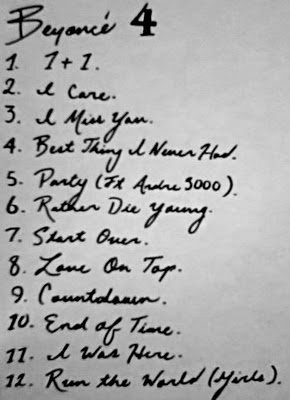 Beyoncé 4
1. 1+1.
2. I Care.
3. I Miss You.
4. Best Thing I Never Had.
5. Party (Ft Andre 3000).
6. Rather Die Young.
7. Start Over.
8. Love On Top.
9. Countdown.
10. End of Time.
11. I Was Here.
12. Run the World (Girls).